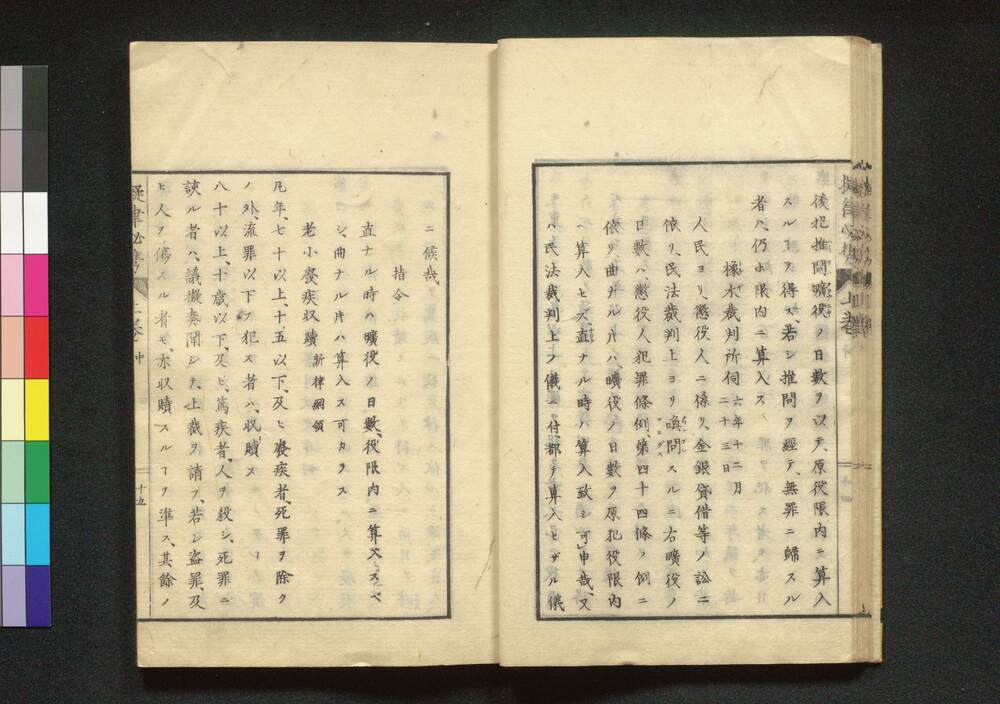 後犯推問曠役ノ日數ヲ以テ、原役限内ニ算入
スルヿヲ得ス、若シ推問ヲ經テ、無罪ニ歸スル
者ハ、仍ホ限内ニ算入ス
橡木裁判所伺 六年十二月二十三日
人民ヨリ、懲役人ニ係リ、金銀貸借等ノ訟ニ
依リ、民法裁判上ヨリ喚問スルニ右曠役ノ
日數ハ懲役人犯罪條例、第四十四條ノ例ニ
依リ、曲ナル片ハ、曠役ノ日數ヲ原犯役限内
ヘ算入セス、直ナル時ハ算入致シ可申哉、又
ハ民法裁判上ノ儀ニ付都テ算入セサル儀
ニ候哉
指令
直ナル時ハ曠役ノ日數、役限内ニ算入スベ
シ、曲ナル片ハ算入ス可カラス
老小癈疾収贖 新律綱領
凡年、七十以上、十五以下、及ヒ癈疾者、死罪ヲ除ク
ノ外、流罪以下ヲ犯ス者ハ、収贖ス
八十以上、十歳以下、及ヒ、篤疾者、人ヲ殺シ、死罪ニ
該ル者ハ、議擬奏聞シテ、上裁ヲ請フ、若シ盗罪、及
ヒ人ヲ傷スル者モ、亦収贖スルヿヲ準ス、其餘ノ
十五